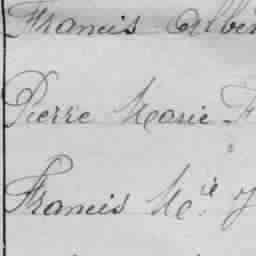 Francis Albin
Pierre Marie F
Francis Mie